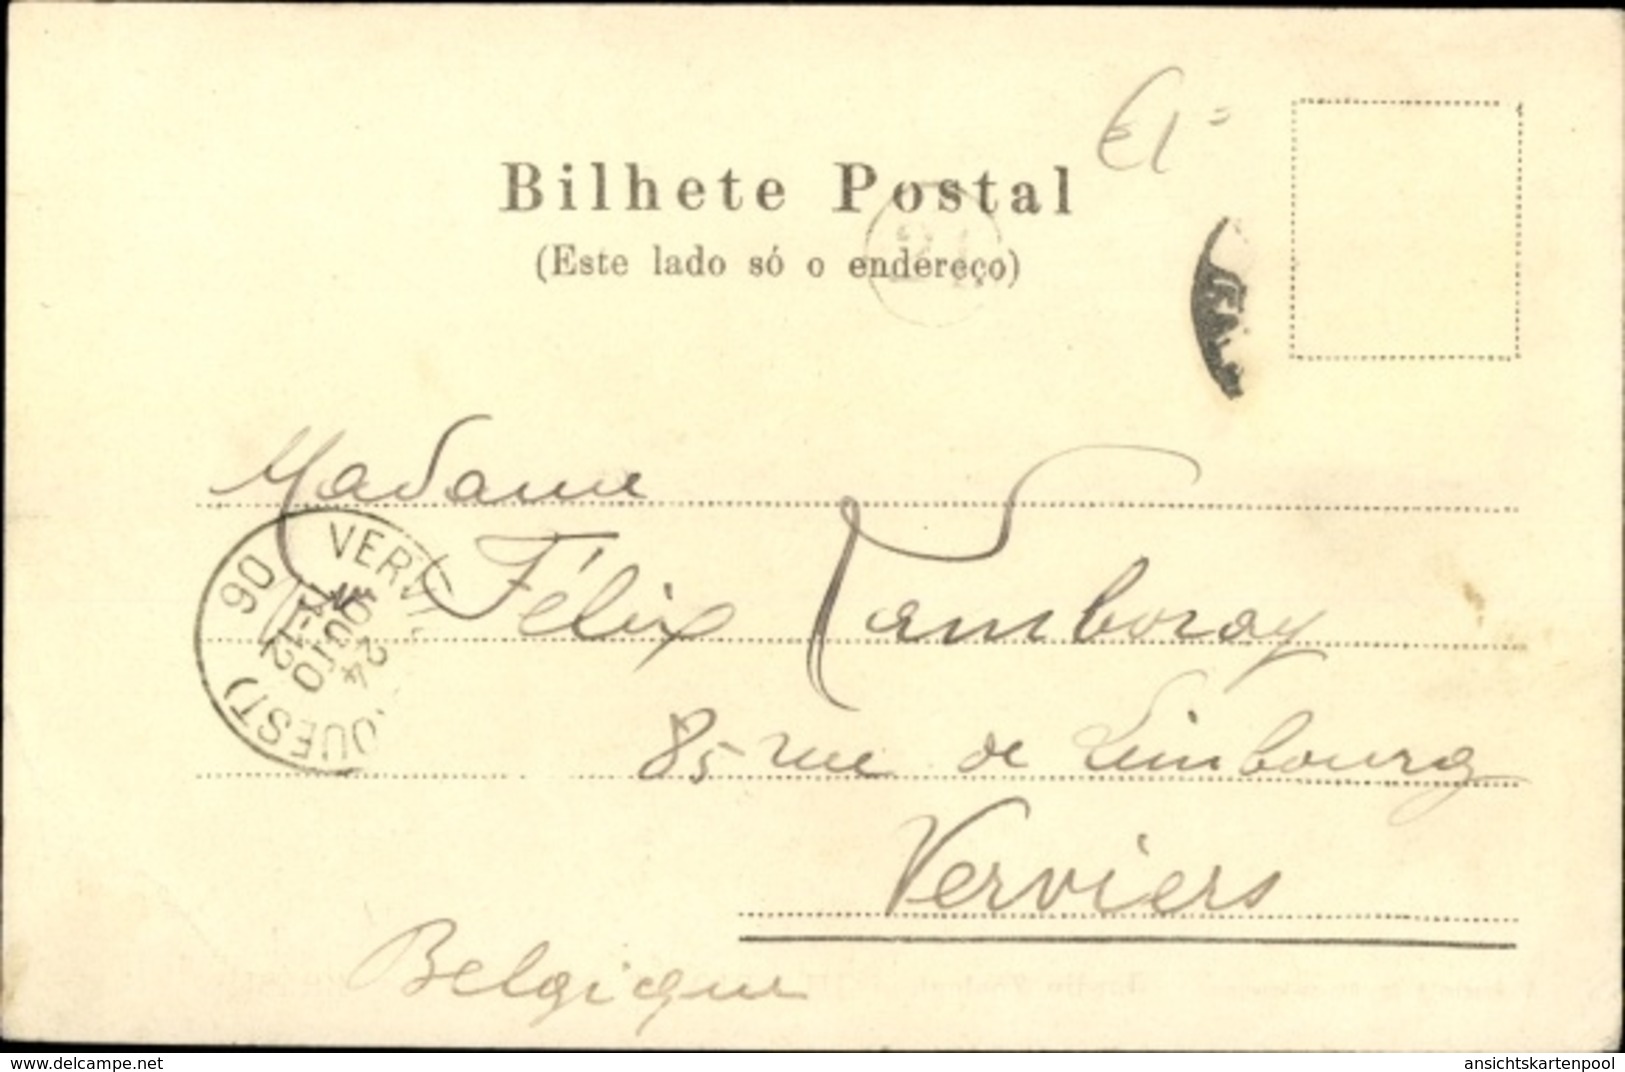 Bilhete Postal
(Este lado só o endereço)
Madame
Félix Tamboray
85 rue de Limbourg
Verviers
Belgique
VERV
(OUEST)
11-12
24
06
www.delcampe.net
ansichtskartenpool